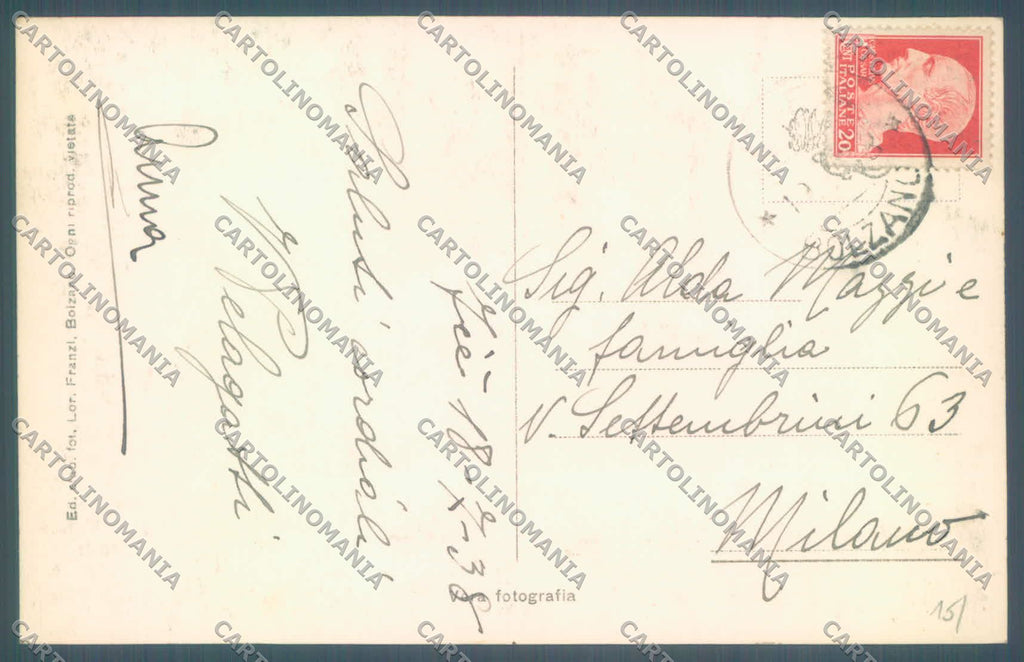 Fiè 18-X-38
Saluti cordiali
W Pelagatti
Anna
Sig. Alda Mazzi e
famiglia
V. Settembrini 63
Milano
POSTE
ITALIANE
20
BOLZANO
Vera fotografia
fot. Lor. Franzl, Bolzano Ogni riprod. vietata
15/
CARTOLINOMANIA